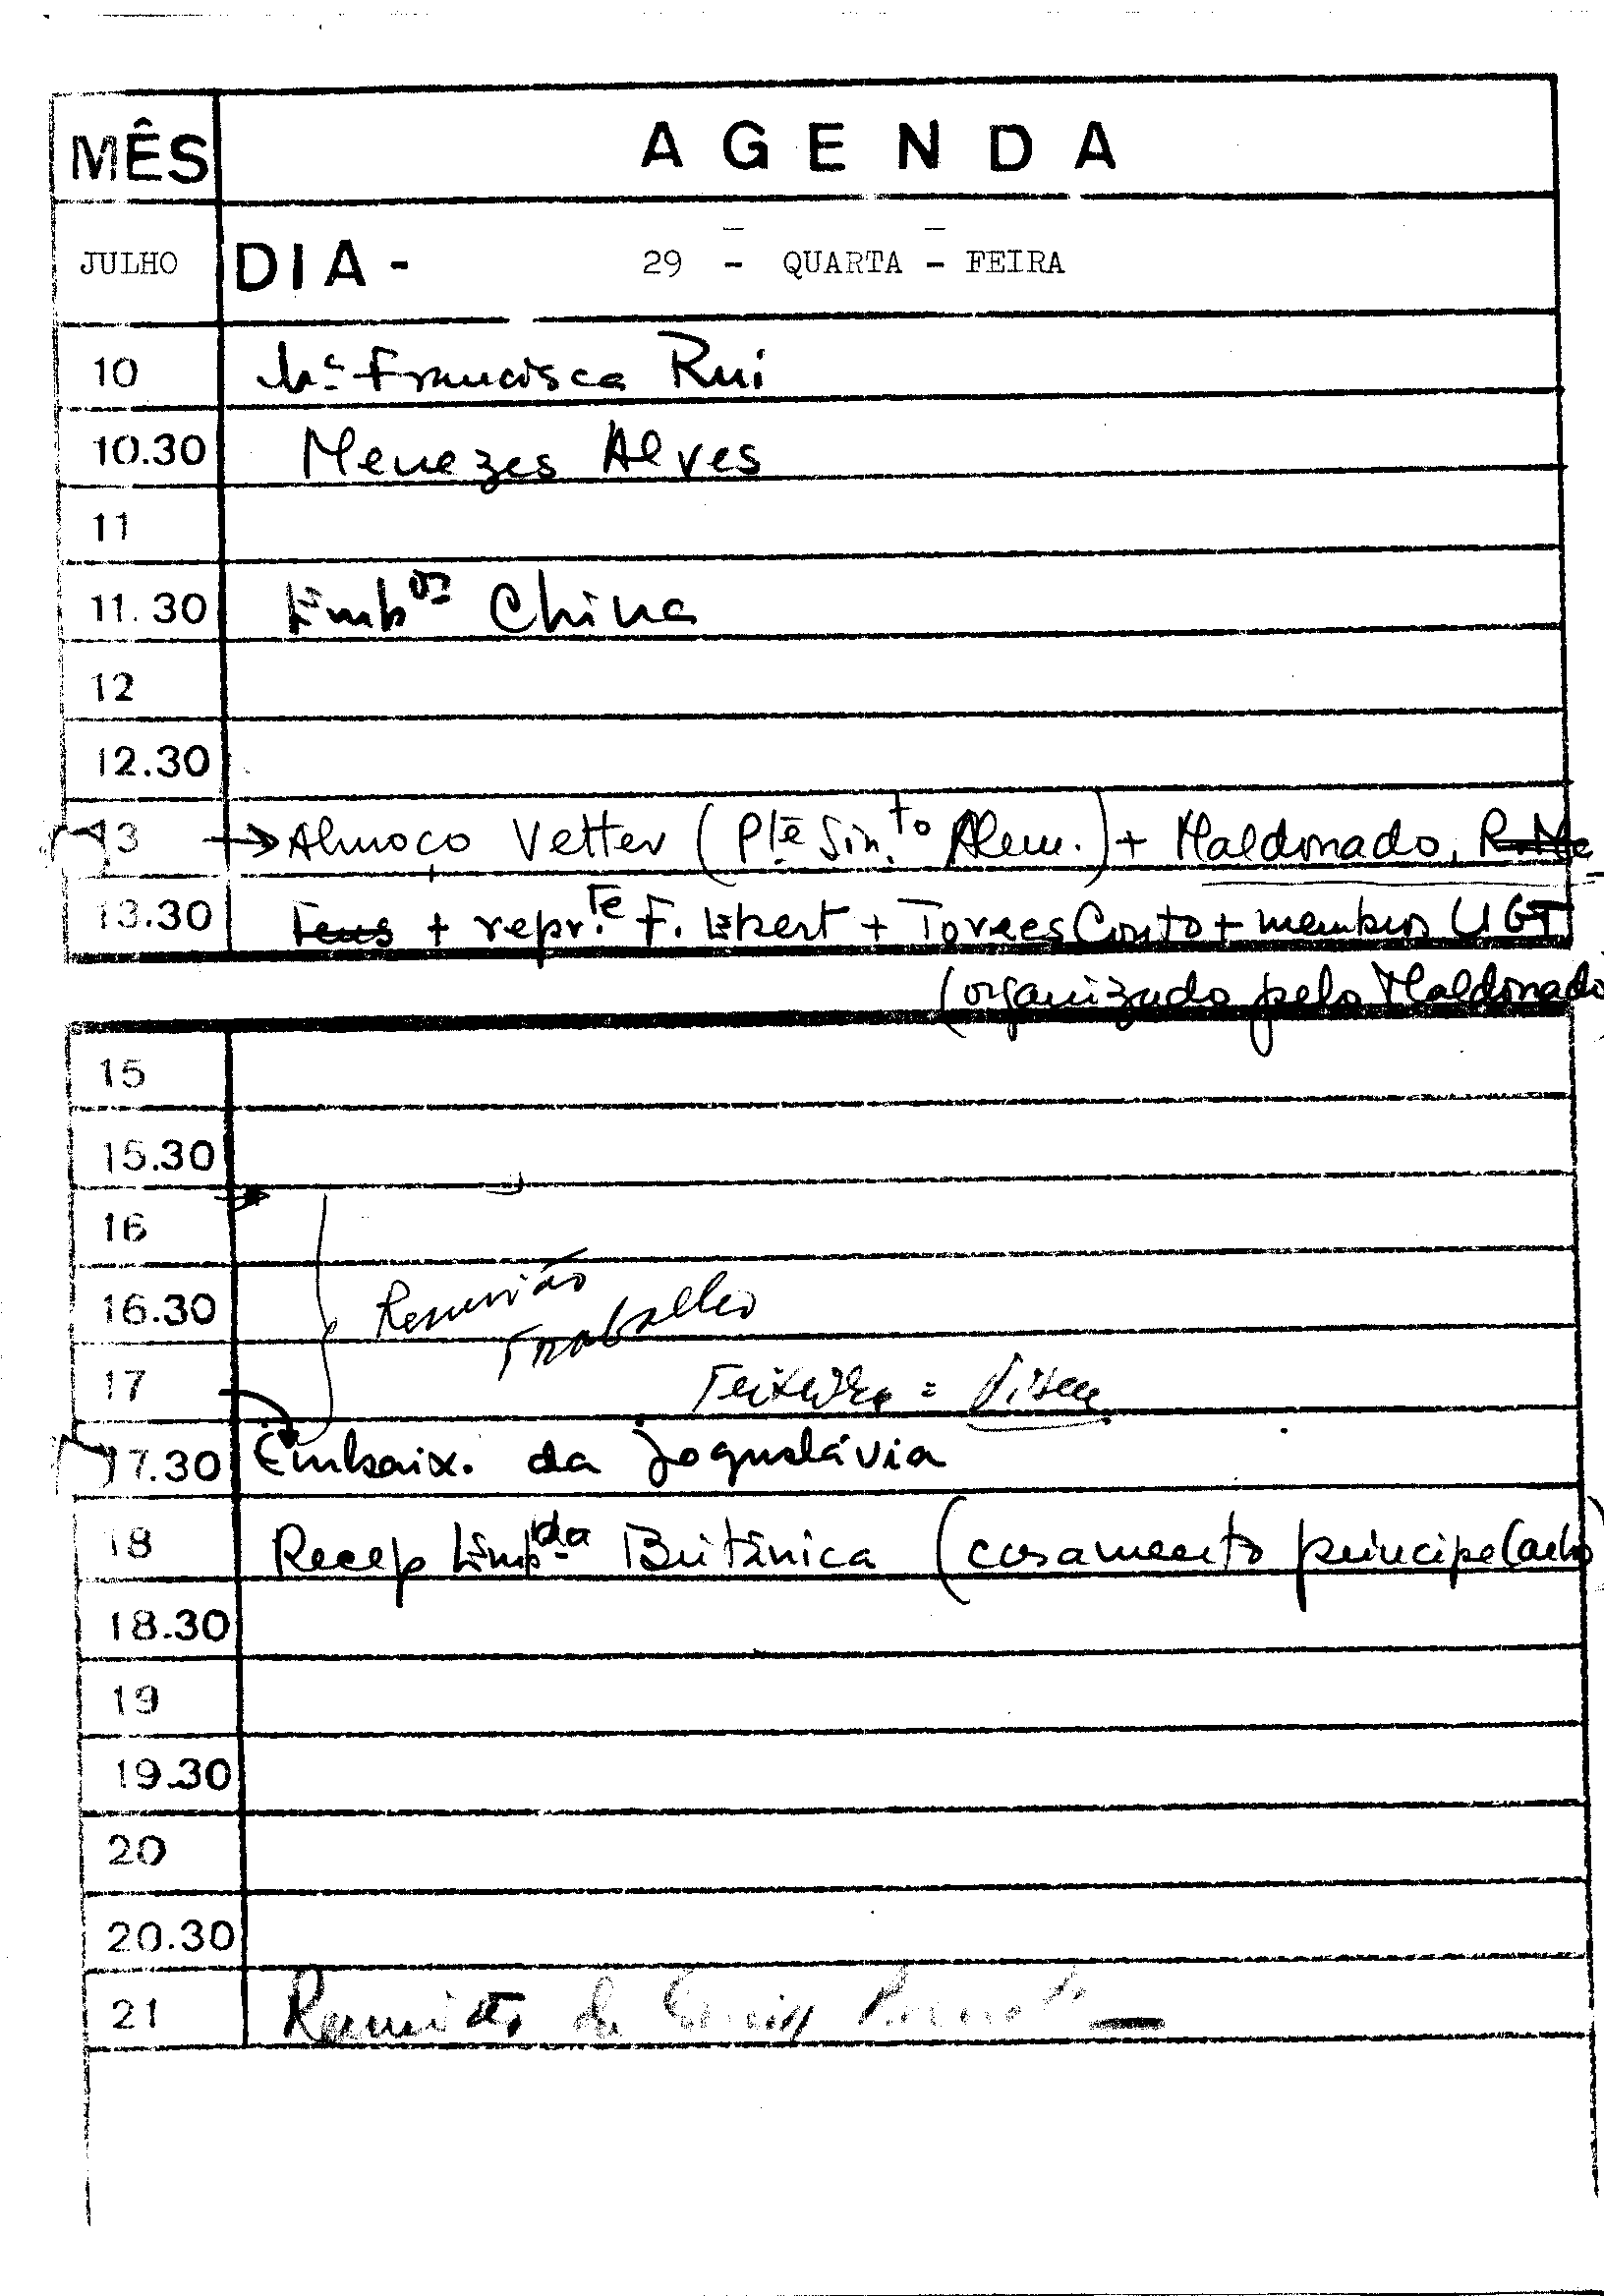 MÊS AGENDA
JULHO DIA - 29 - QUARTA - FEIRA
10 Mª Francisca Rui
10.30 Menezes Alves
11
11.30 Embor China
12
12.30
13 → Almoço Vetter (Pte Sin.to Alem.) + Maldonado, R. Me
13.30 + repr.te F. Ebert + Torres Couto + membros UGT
(organizado pelo Maldonado
15
15.30
16
16.30 Reunião
Trabalho
17 Teixeira =
17.30 Embaix. da Joguslávia
18 Recep Embda Britânica (casamento principe Carlos)
18.30
19
19.30
20
20.30
21 Reunião da